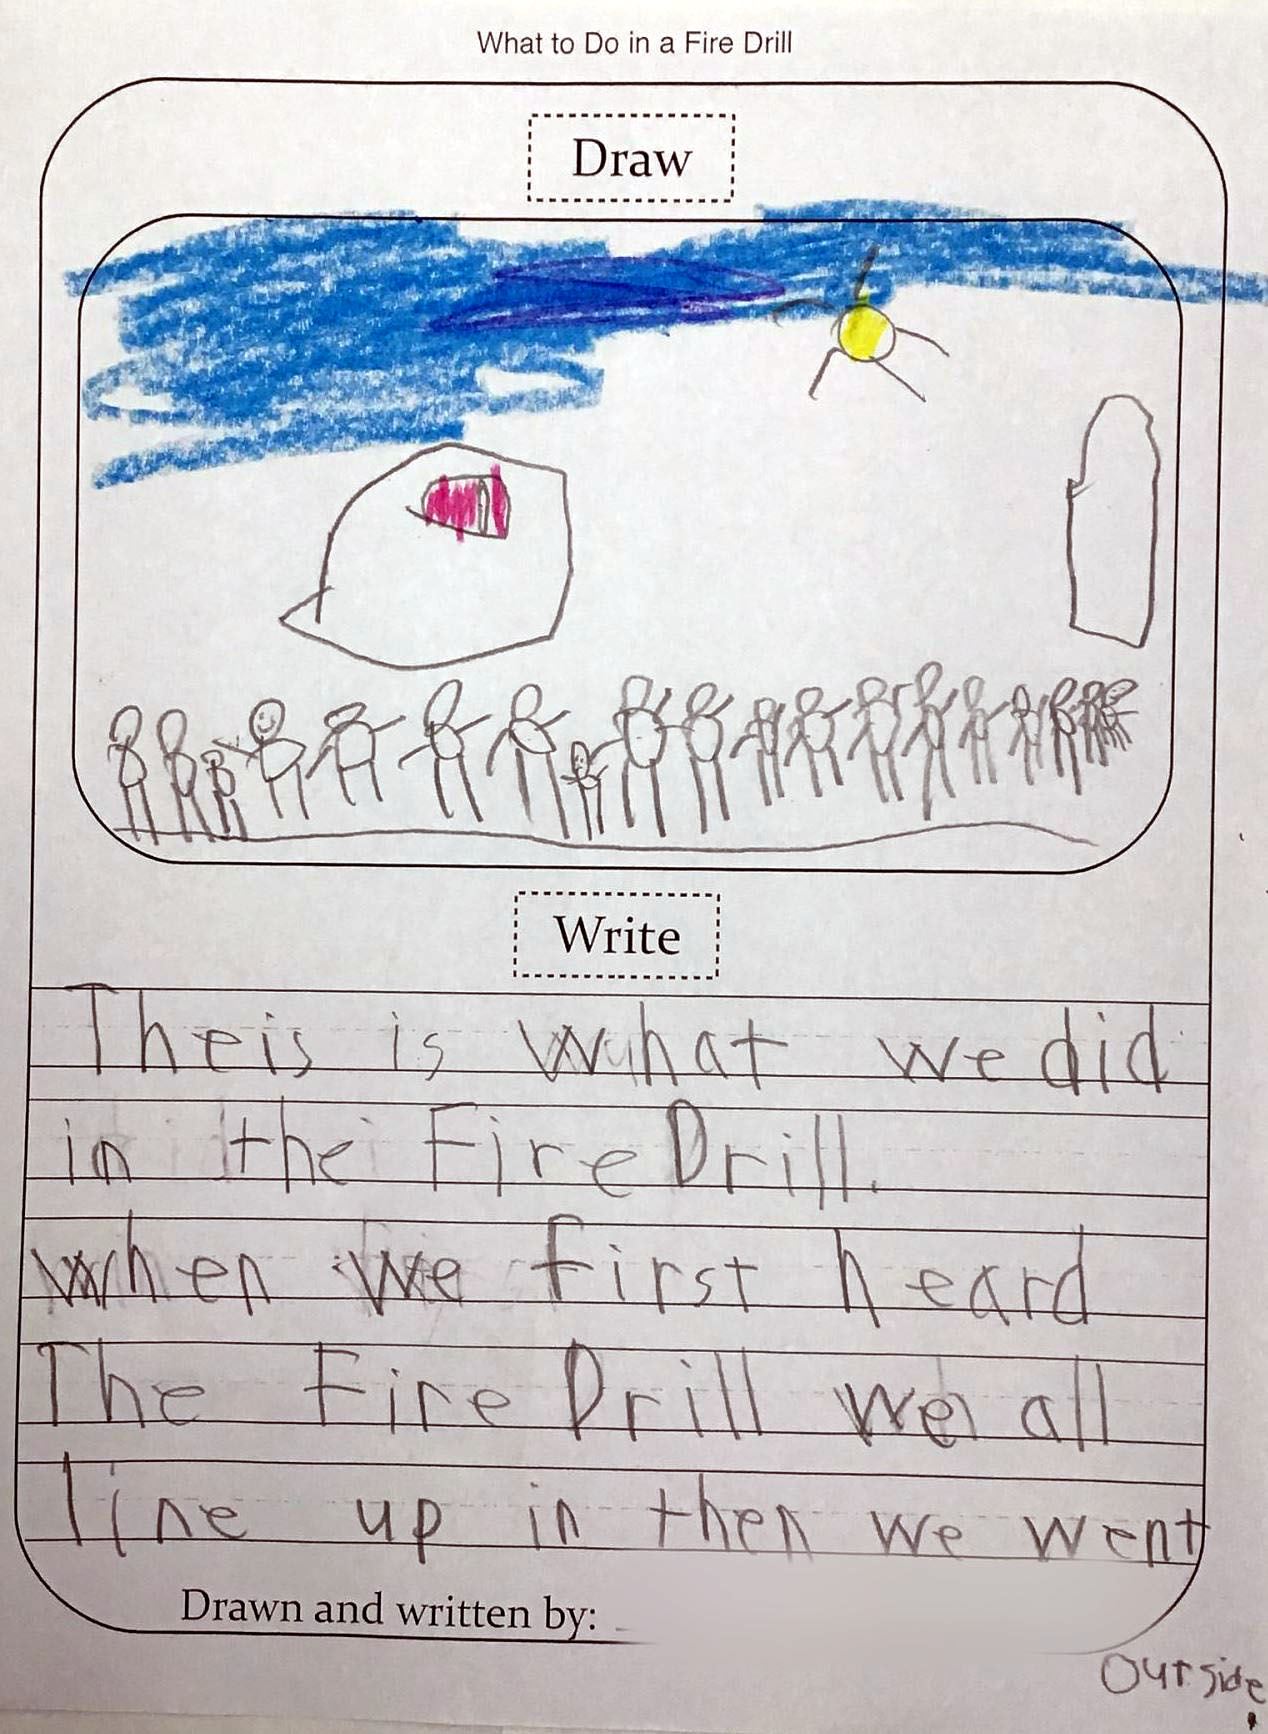 What to Do in a Fire Drill
Draw
Write
Theis is what we did
in the Fire Drill.
when we first heard
The Fire Drill we all
line up in then we went
Drawn and written by:
Outside.